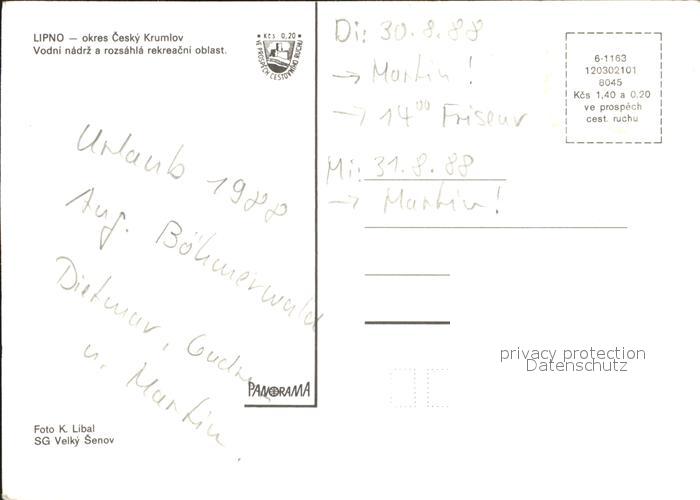 LIPNO — okres Český Krumlov
Vodní nádrž a rozsáhlá rekreační oblast.
Kčs 0,20
VE PROSPĚCH CESTOVNÍHO RUCHU
Urlaub 1988
Aug. Böhmerwald
Dietmar, Gudrun
u. Martin.
PANORAMA
Foto K. Libal
SG Velký Šenov
Di: 30.8.88
→ Martin!
→ 14⁰⁰ Friseur
Mi: 31.8.88
→ Martin!
6-1163
120302101
8045
Kčs 1,40 a 0.20
ve prospěch
cest. ruchu
privacy protection
Datenschutz